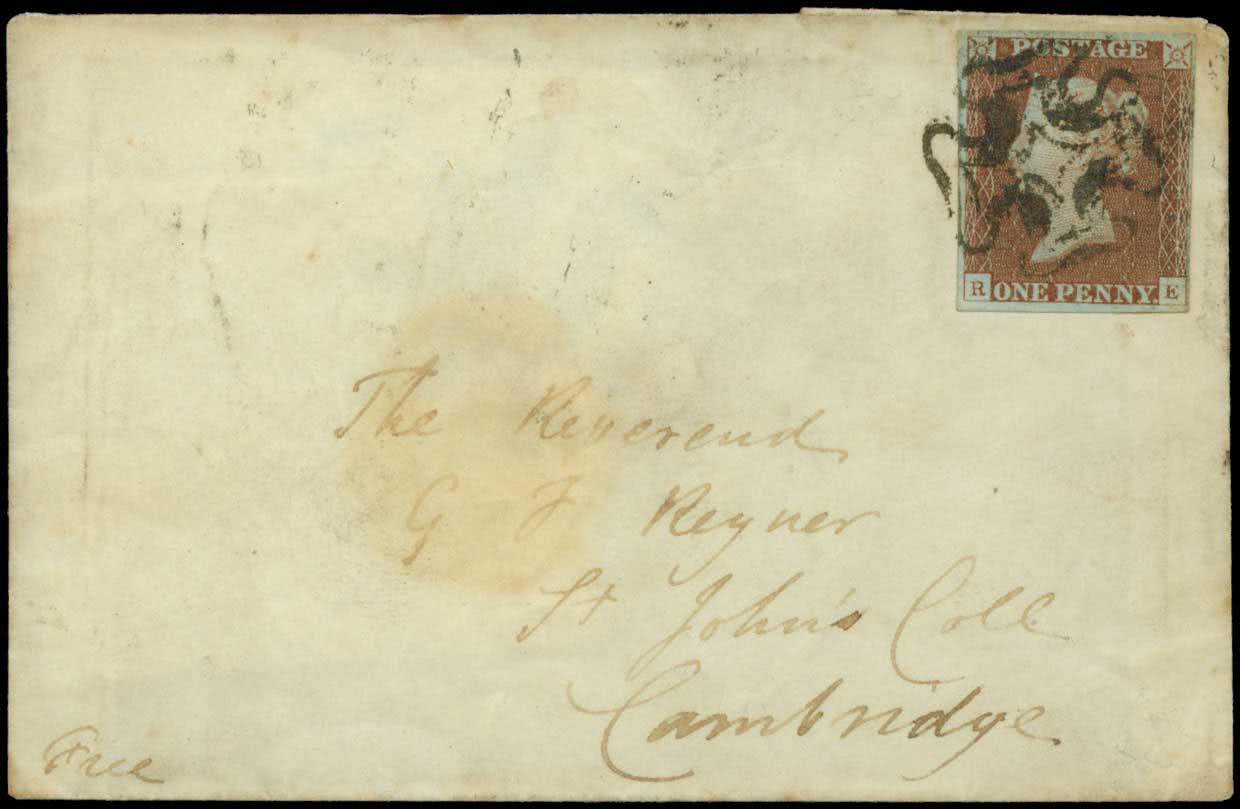 POSTAGE
R ONE PENNY. E
The Reverend
G F Reyner
St John's Coll
Cambridge
Free